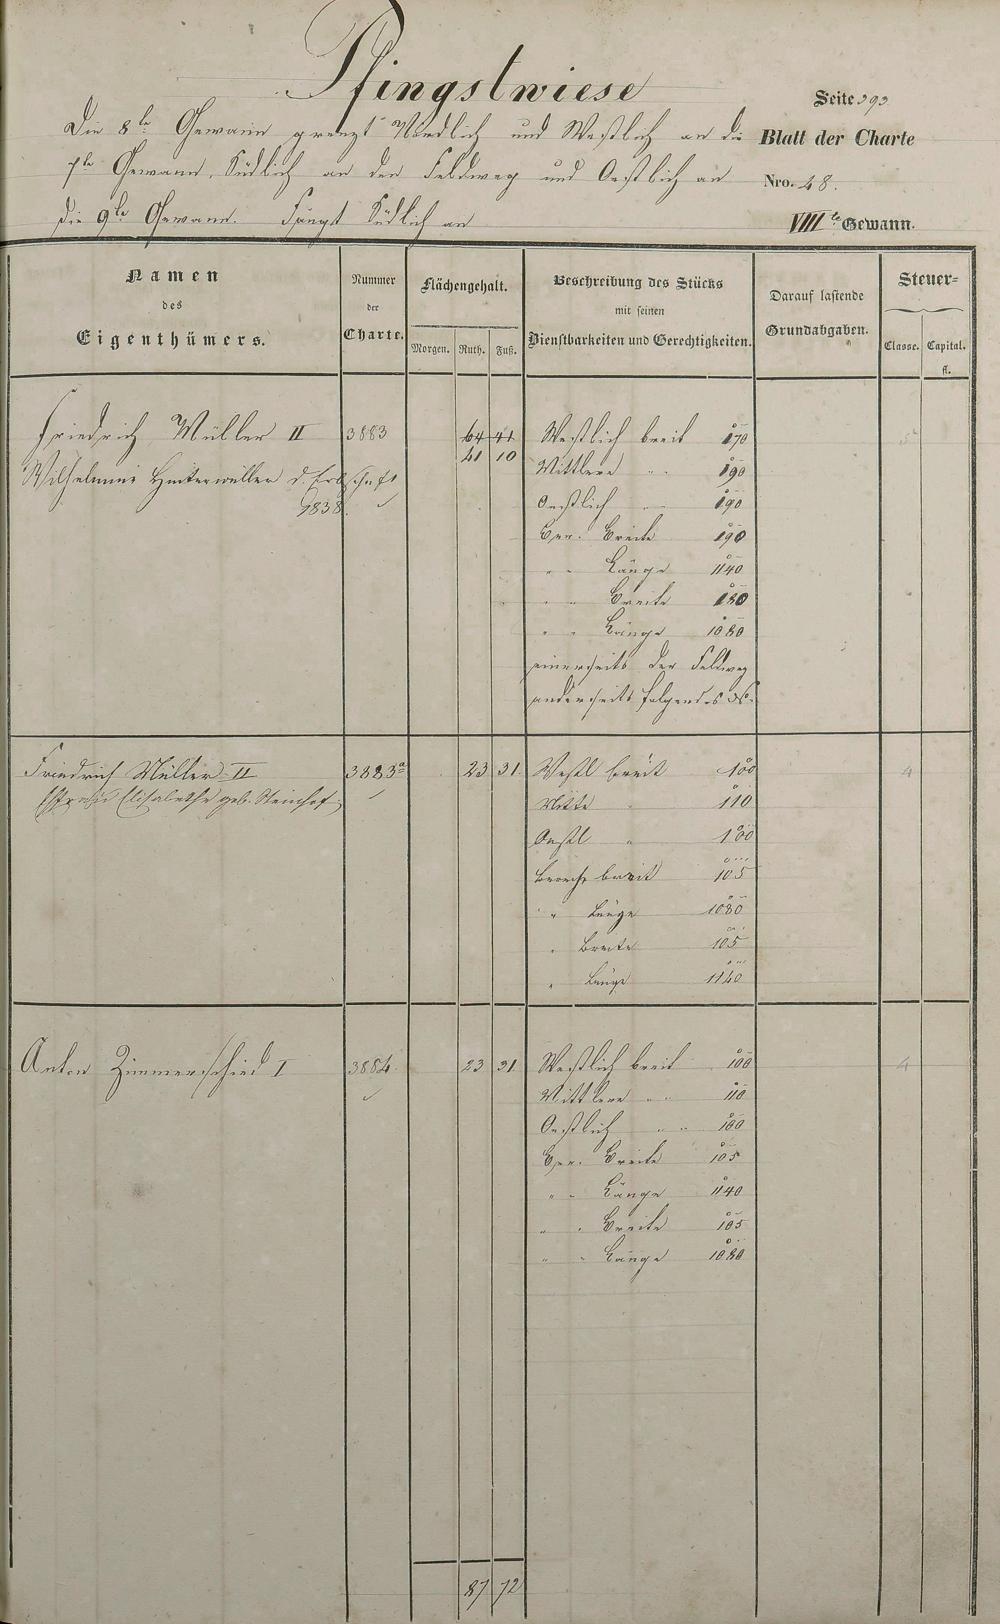 Pfingstwiese
Seite 393
Die 8te Gewann grenzt Nördlich und Westlich an die
Blatt der Charte
7te Gewann, Südlich an den Feldweg und Oestlich an
Nro. 48.
die 9te Gewann. Fängt Südlich an
VIIIte Gewann.
Namen des Eigenthümers.
Nummer der Charte.
Flächengehalt.
Morgen. Ruth. Fuß.
Beschreibung des Stücks
mit seinen
Dienstbarkeiten und Gerechtigkeiten.
Darauf lastende
Grundabgaben.
Steuer-
Classe. Capital.
fl.
Friedrich Müller II 3883 64 41 Westlich breit 170
41 10
Wilhelmine d. Erbschaft
1838
Mittlere " " 190
Oestlich " " 190
Ber. Breite 190
" " Länge 1140
" " Breite 180
" " Länge 1080
einerseits der Feldweg
anderseits folgendes
Friedrich Müller II 3883a 23 31 Westl breit 100 4
Ehefrau Elisabethe geb. Steinhof
Mitte " 110
Oestl " 100
Berech breit 105
" Länge 1080
" Breite 105
" Länge 1140
Anton Zimmerschied I 3884 23 31 Westlich breit 100 4
Mittlere " " 110
Oestlich " " 100
Ber. Breite 105
" " Länge 1140
" " Breite 105
" " Länge 1080
87 72